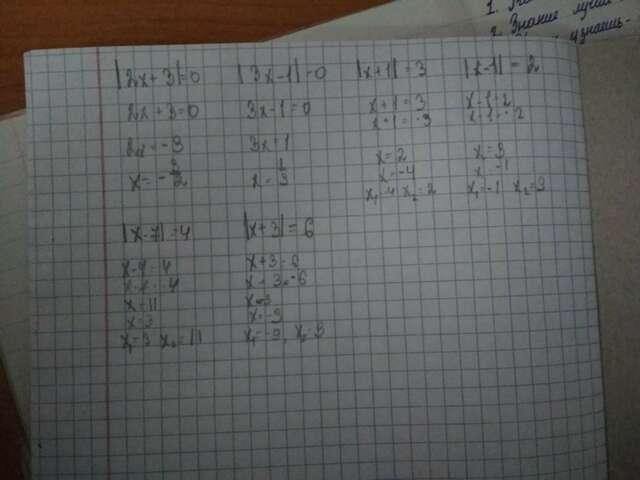 1.
2. Знание
|2x+3|=0
2x+3=0
2x=-3
x=-3/2
|3x-1|=0
3x-1=0
3x=1
x=1/3
|x+1|=3
x+1=3
x+1=-3
x=2
x=-4
x₁=-4 x₂=2
|x-1|=2
x-1=2
x-1=-2
x=3
x=-1
x₁=-1 x₂=3
|x-7|=4
x-7=4
x-7=-4
x=11
x=3
x₁=3 x₂=11
|x+3|=6
x+3=6
x+3=-6
x=3
x=-9
x₁=-9, x₂=3